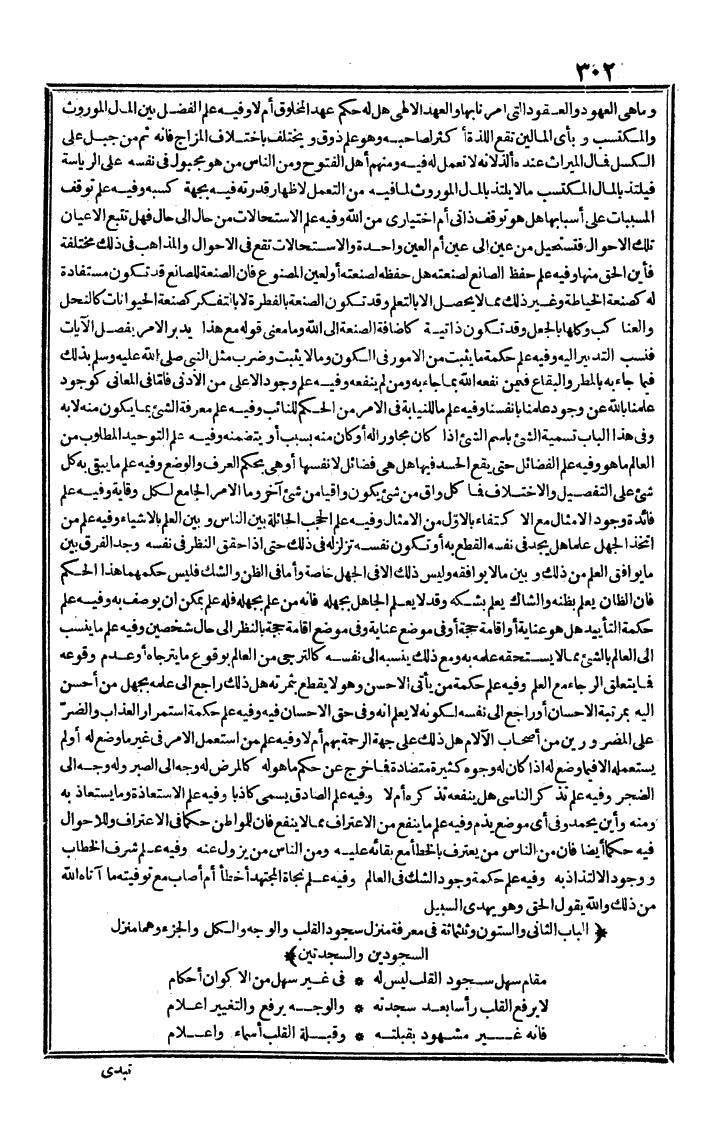 ٣٠٢
وماهى العهود والعقود التى أمرنا بها والعهد الالهى هل له حكم عهد المخلوق أم لا وفيه علم الفضل بين المال الموروث
والمكتسب وبأى المالين تقع اللذة أكثر لصاحبه وهو علم ذوق ويختلف باختلاف المزاج فانه ثم من جبل على
الكسل فمال الميراث عنده ألذ لانه لا تعمل له فيه ومنهم أهل الفتوح ومن الناس من هو مجبول فى نفسه على الرياسة
فيلتذ بالمال المكتسب ما لا يلتذ بالمال الموروث لما فيه من التعمل لاظهار قدرته فيه بجهة كسبه وفيه علم توقف
المسببات على أسبابها هل هو توقف ذاتى أم اختيارى من الله وفيه علم الاستحالات من حال الى حال فهل تتبع الاعيان
تلك الاحوال فتستحيل من عين الى عين أم العين واحدة والاستحالات تقع فى الاحوال والمذاهب فى ذلك مختلفة
فأين الحق منها وفيه علم حفظ الصانع لصنعته هل حفظه لصنعته أو لعين المصنوع فان الصنعة للصانع قد تكون مستفادة
له كصنعة الخياطة وغير ذلك مما لا يحصل الا بالتعلم وقد تكون الصنعة بالفطرة لا بالتفكر كصنعة الحيوانات كالنحل
والعناكب وكلها بالجعل وقد تكون ذاتية كاضافة الصنعة الى الله وما معنى قوله مع هذا يدبر الامر يفصل الآيات
فنسب التدبير اليه وفيه علم حكمة ما يثبت من الامور فى الكون وما لا يثبت وضرب مثل النبى صلى الله عليه وسلم بذلك
فيما جاء به بالمطر والبقاع فمن نفعه الله بما جاء به ومن لم ينفعه وفيه علم وجود الاعلى من الادنى فاما فى المعانى كوجود
علمنا بالله عن وجود علمنا بانفسنا وفيه علم ما للنيابة فى الامر من الحكم للنائب وفيه علم معرفة الشئ بما يكون منه لا به
وفى هذا الباب تسمية الشئ باسم الشئ اذا كان مجاوراله أو كان منه بسبب أو يتضمنه وفيه علم التوحيد المطلوب من
العالم ما هو وفيه علم الفضائل حتى يقع الحسد فيها هل هى فضائل لانفسها أو هى بحكم العرف والوضع وفيه علم ما يتقى به كل
شئ على التفصيل والاختلاف فما كل واق من شئ يكون واقيا من شئ آخر وما الامر الجامع لكل وقاية وفيه علم
فائدة وجود الامثال مع الاكتفاء بالاول من الامثال وفيه علم الحجب الحائلة بين الناس وبين العلم بالاشياء وفيه علم من
اتخذ الجهل علما هل يجد فى نفسه القطع به أو تكون نفسه تزلزله فى ذلك حتى اذا حقق النظر فى نفسه وجد الفرق بين
ما يوافق العلم من ذلك وبين ما لا يوافقه وليس ذلك الا فى الجهل خاصة وأما فى الظن والشك فليس حكمهما هذا الحكم
فان الظان يعلم بظنه والشاك يعلم بشكه وقد لا يعلم الجاهل بجهله فانه من علم بجهله فله علم يمكن ان يوصف به وفيه علم
حكمة التأييد هل هو عناية أو اقامة حجة أو فى موضع عناية وفى موضع اقامة حجة بالنظر الى حال شخصين وفيه علم ما ينسب
الى العالم بالشئ مما لا يستحقه علمه به ومع ذلك ينسبه الى نفسه كالترجى من العالم بوقوع ما يترجاه أو عدم وقوعه
فما يتعلق الرجاء مع العلم وفيه علم حكمة من يأتى الاحسن وهو لا يقطع بثمرته هل ذلك راجع الى علمه بجهل من أحسن
اليه بمرتبة الاحسان أو راجع الى نفسه لكونه لا يعلم انه وفى حق الاحسان فيه وفيه علم حكمة استمرار العذاب والضر
على المضرورين من أصحاب الآلام هل ذلك على جهة الرحمة بهم أم لا وفيه علم من استعمل الامر فى غير ما وضع له أو لم
يستعمله الا فيما وضع له اذا كان له وجوه كثيرة متضادة فما خرج عن حكم ما هو له كالمرض له وجه الى الصبر وله وجه الى
الضجر وفيه علم تذكر الناسى هل ينفعه تذكره أم لا وفيه علم الصادق يسمى كاذبا وفيه علم الاستعاذة وما يستعاذ به
ومنه وأين يحمد وفى أى موضع يذم وفيه علم ما ينفع من الاعتراف مما لا ينفع فان للمواطن حكما فى الاعتراف وللاحوال
فيه حكما أيضا فان من الناس من يعترف بالخطأ مع بقائه عليه ومن الناس من يزول عنه وفيه علم شرف الخطاب
ووجود الالتذاذ به وفيه علم حكمة وجود الشك فى العالم وفيه علم نجاة المجتهد أخطأ أم أصاب مع توفيته ما آتاه الله
من ذلك والله يقول الحق وهو يهدى السبيل
﴿ الباب الثانى والستون وثلثمائة فى معرفة منزل سجود القلب والوجه والكل والجزء وهما منزل
السجودين والسجدتين ﴾
مقام سهل سجود القلب ليس له * فى غير سهل من الاكوان أحكام
لا يرفع القلب رأسا بعد سجدته * والوجه يرفع والتغيير اعلام
فانه غير مشهود بقبلته * وقبلة القلب أسماء واعلام
تبدى